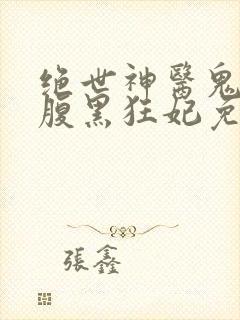 绝世神醫鬼
腹黑狂妃免
張鑫